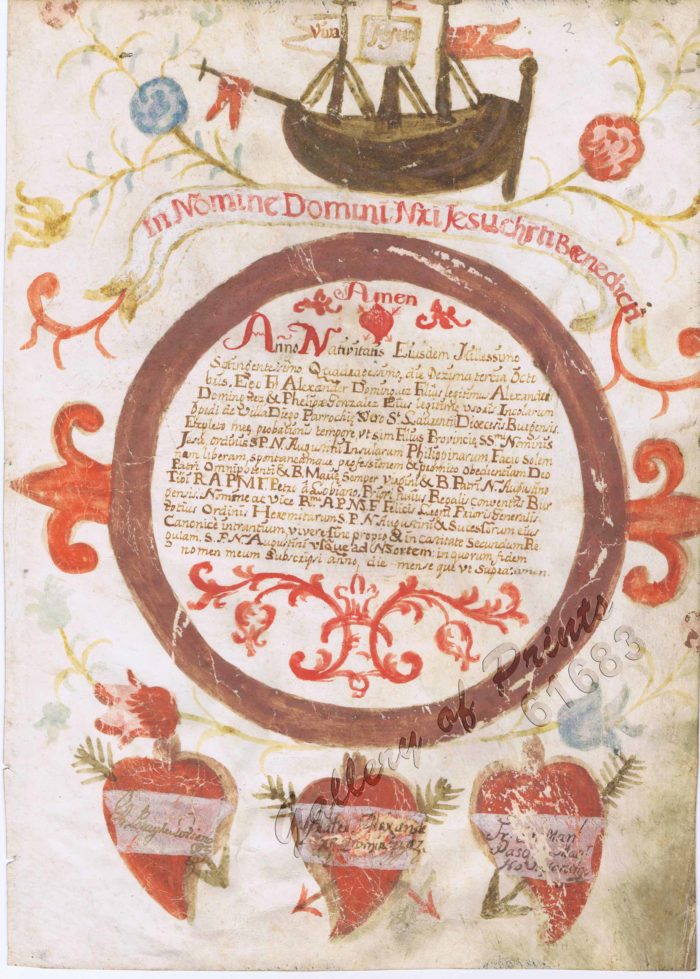 Viva Jesus
2
In Nomine Domini Nri Jesuchrti Benedicti
Amen
Anño Nativitatis Eiusdem Millessimo
Septingentessimo Quadragessimo, die Dezima tercia Octo
bus, Ego Fr Alexander Dominguez Filius legitimus Alexandri
Dominguez & Phelipa Gonzalez Petus legitime uxoris Incolarum
Opidi de Villa Diego Parrochię Vero Sti Laurenti Diocessis Burgensis.
Expleto meę probationis tempore ut sim Filius Provincię SSmi Nominis
Jesu, ordinis S.P.N. Augustini Insularum Philippinarum Facio Solem
nem, liberam, spontaneamque professionem & promitto Obedientiam Deo
Patri Omnipotenti & B Marię Semper Virgini & B. Patri N. Augustino
Tibi R.A.P.M.F. Petrus a Gobiano, Priori huius Regalis Conventus Bur
gensis. Nomine ac Vice Rmi A.P.N.F. Felicis Leoni Prioris Generalis
totius Ordinis Heremitarum S.P.N. Augustini & Sucessorum eius
Canonice intrantium, vivere sine propio & in castitate Secundum Re
gulam. S.P.N. Augustini Usque ad Mortem: in quorum fidem
nomen meum Subscripsi anno, die mense que ut Supra: amen.
Frater Alexander
Dominguez.
Gallery of Prints
61683